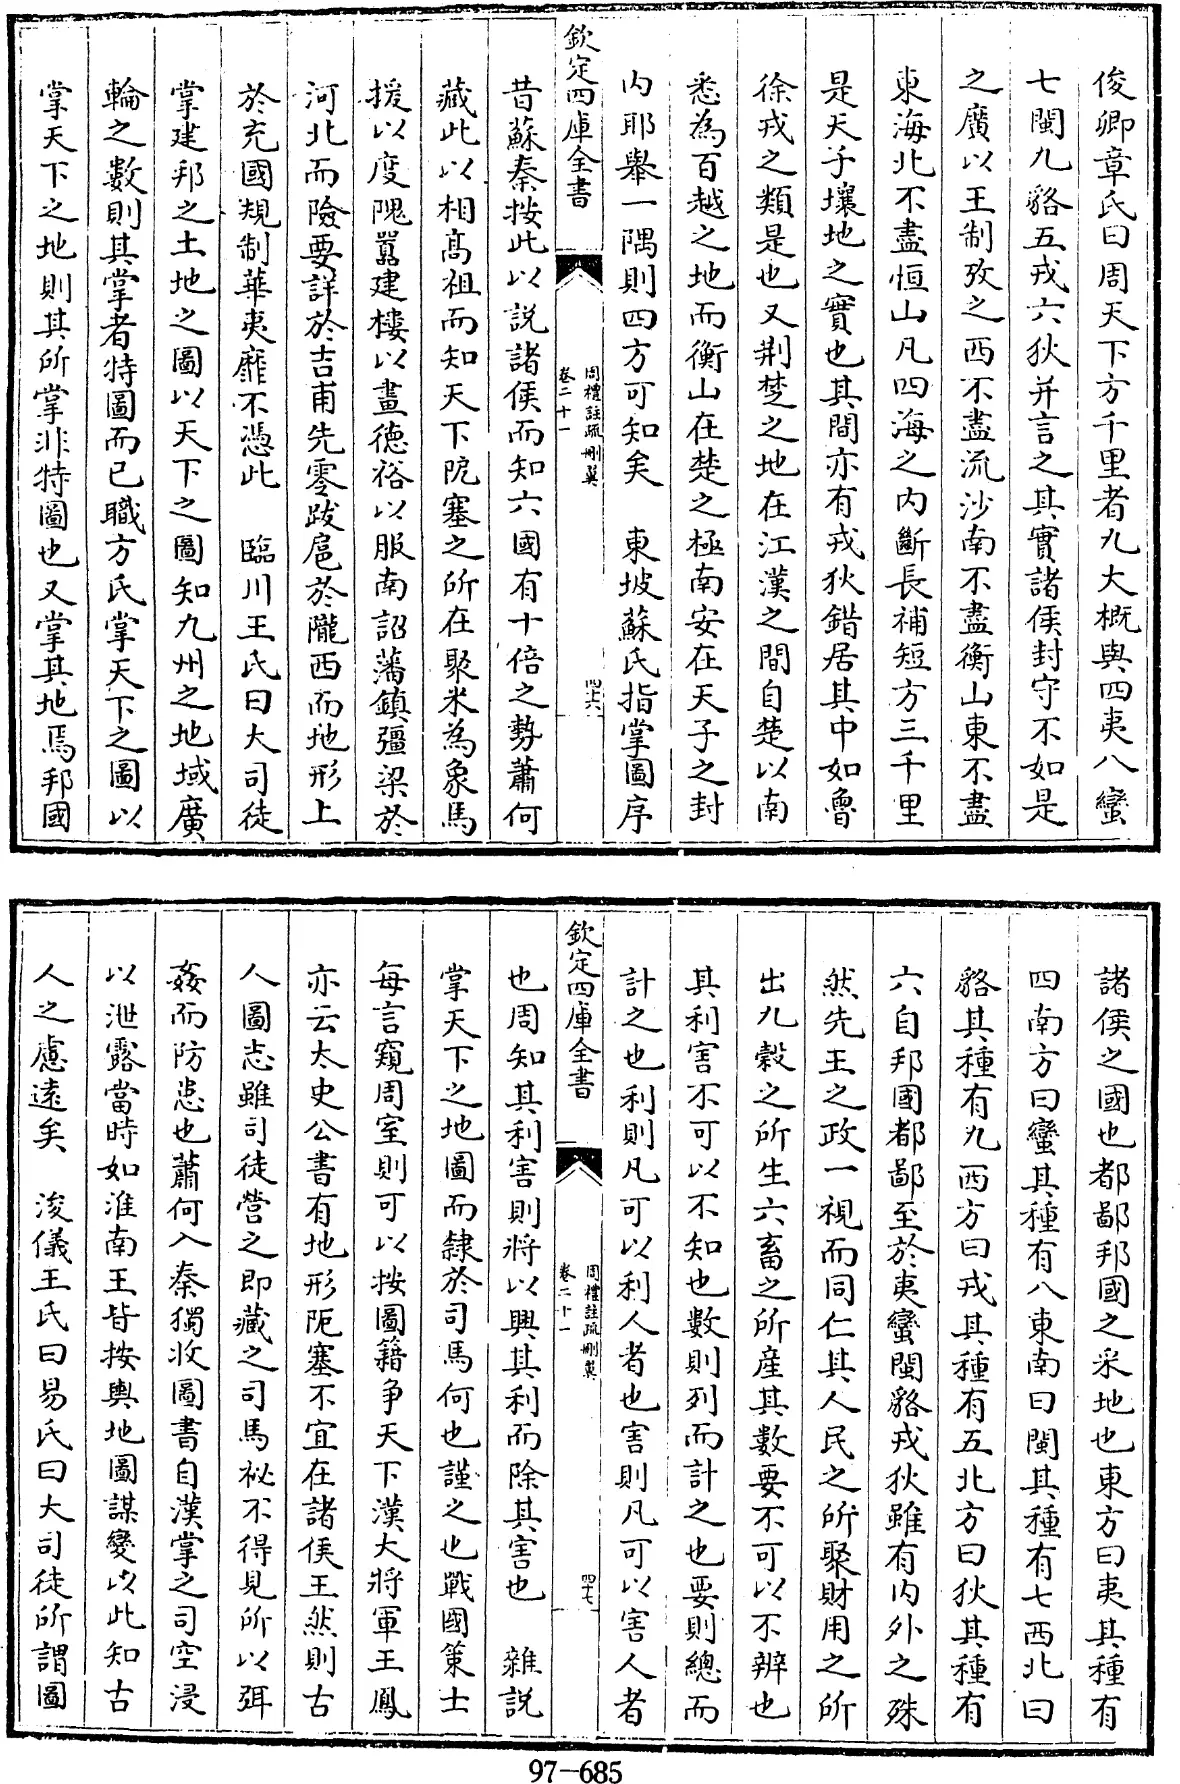 俊卿章氏曰周天下方千里者九大概與四夷八蠻
七閩九貉五戎六狄并言之其實諸侯封守不如是
之廣以王制攷之西不盡流沙南不盡衡山東不盡
東海北不盡恒山凡四海之内斷長補短方三千里
是天子壤地之實也其間亦有戎狄錯居其中如魯
徐戎之類是也又荆楚之地在江漢之間自楚以南
悉為百越之地而衡山在楚之極南安在天子之封
内耶舉一隅則四方可知矣　東坡蘇氏指掌圖序
欽定四庫全書
周禮註疏刪翼
卷二十一
四六
昔蘇秦按此以説諸侯而知六國有十倍之勢蕭何
藏此以相高祖而知天下阨塞之所在聚米為象馬
援以度隗囂建樓以畫德裕以服南詔藩鎮彊梁於
河北而險要詳於吉甫先零跋扈於隴西而地形上
於充國規制華夷靡不憑此　臨川王氏曰大司徒
掌建邦之土地之圖以天下之圖知九州之地域廣
輪之數則其掌者特圖而已職方氏掌天下之圖以
掌天下之地則其所掌非特圖也又掌其地焉邦國
諸侯之國也都鄙邦國之采地也東方曰夷其種有
四南方曰蠻其種有八東南曰閩其種有七西北曰
貉其種有九西方曰戎其種有五北方曰狄其種有
六自邦國都鄙至於夷蠻閩貉戎狄雖有内外之殊
然先王之政一視而同仁其人民之所聚財用之所
出九穀之所生六畜之所産其數要不可以不辨也
其利害不可以不知也數則列而計之也要則總而
計之也利則凡可以利人者也害則凡可以害人者
欽定四庫全書
周禮註疏刪翼
卷二十一
四七
也周知其利害則將以興其利而除其害也　雜説
掌天下之地圖而隸於司馬何也謹之也戰國策士
每言窺周室則可以按圖籍争天下漢大將軍王鳳
亦云太史公書有地形阨塞不宜在諸侯王然則古
人圖志雖司徒營之即藏之司馬祕不得見所以弭
姦而防患也蕭何入秦獨收圖書自漢掌之司空浸
以泄露當時如淮南王皆按輿地圖謀變以此知古
人之慮遠矣　浚儀王氏曰易氏曰大司徒所謂圖
97-685